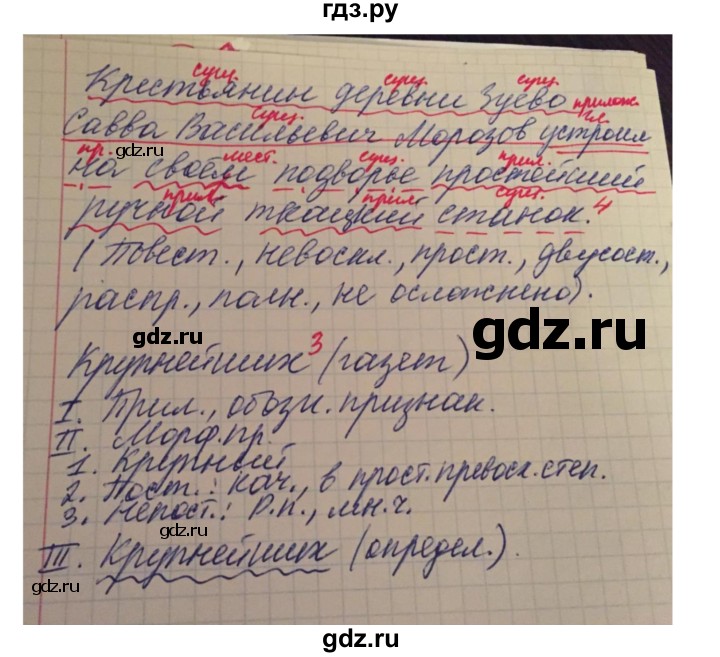 гдз.ру
сущ. сущ. сущ.
Крестьянин деревни Зуево
прилож.
сущ. гл.
Савва Васильевич Морозов устроил
пр. мест. сущ. прил.
на своём подворье простейший
прил. прил. сущ.
ручной ткацкий станок. 4
(Повест., невоскл., прост., двусост.,
распр., полн., не осложнено).
Крупнейших 3 (газет)
I. Прил., обозн. признак.
II. Морф. пр.
1. Крупный
2. Пост.: кач., в прост. превосх. степ.
3. Непост.: Р.п., мн.ч.
III. Крупнейших (определ.).
gdz.ru
gdz.ru
gdz.ru
gdz.ru
gdz.ru
gdz.ru
gdz.ru
gdz.ru
gdz.ru